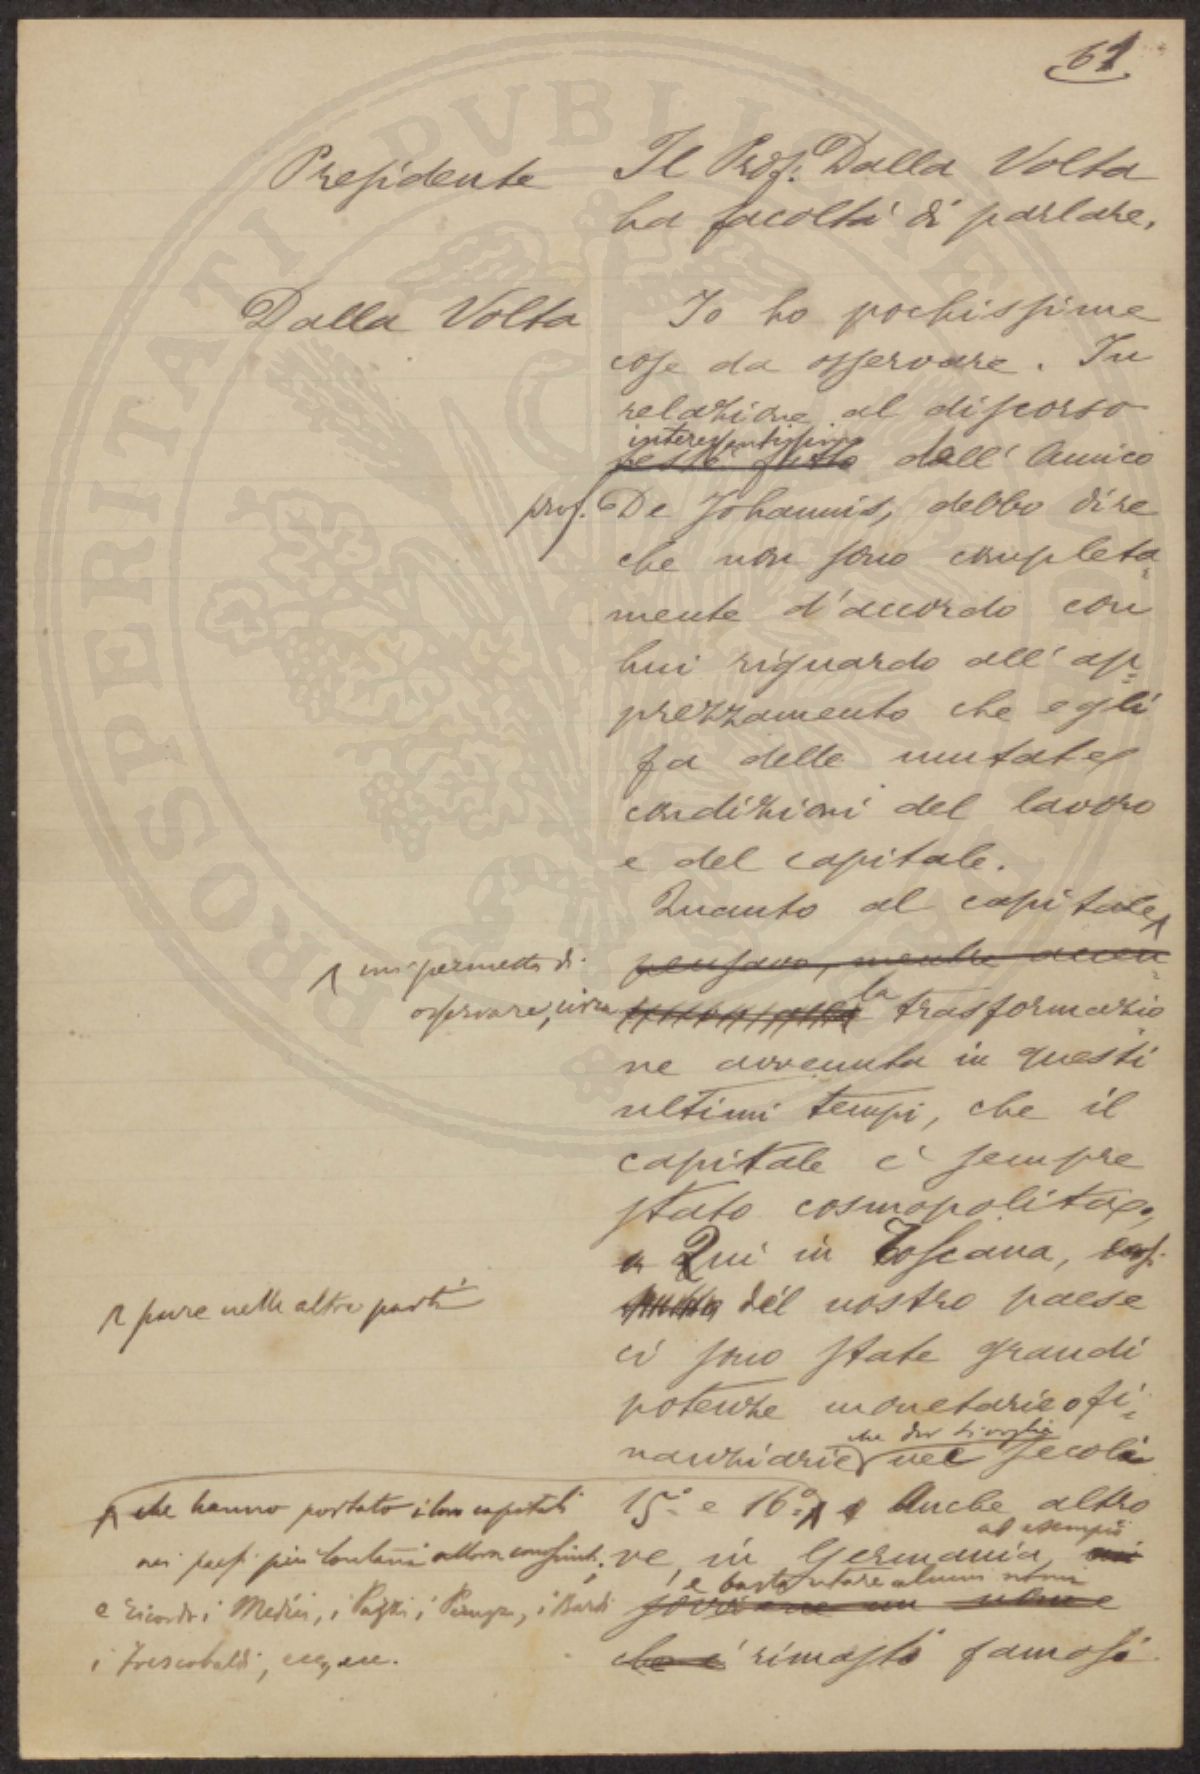 61
Presidente Il Prof. Dalla Volta
ha facoltà di parlare.
Dalla Volta Io ho pochissime
cose da osservare. In
relazione al discorso
interessantissimo
dell'Amico
prof. De Johannis, debbo dire
che non sono completa-
mente d'accordo con
lui riguardo all'ap-
prezzamento che egli
fa delle mutate
condizioni del lavoro
e del capitale.
Quanto al capitale
mi permetto di pensavo, mentre accen-
osservare, circa la trasformazio
ne avvenuta in questi
ultimi tempi, che il
capitale è sempre
stato cosmopolita.
Qui in Toscana, così
pure nelle altre parti del nostro paese
ci sono state grandi
potenze monetarie o fi-
nanziarie nei secoli
che hanno portato i loro capitali 15° e 16°. Anche altro
ad esempio
nei paesi più lontani allora conosciuti; ve, in Germania,
e basta citare alcuni nomi
e ricordo i Medici, i Pazzi, i Peruzzi, i Bardi un nome
i Frescobaldi, ecc, ecc. che è rimasti famosi
PROSPERITATI PVBLICAE